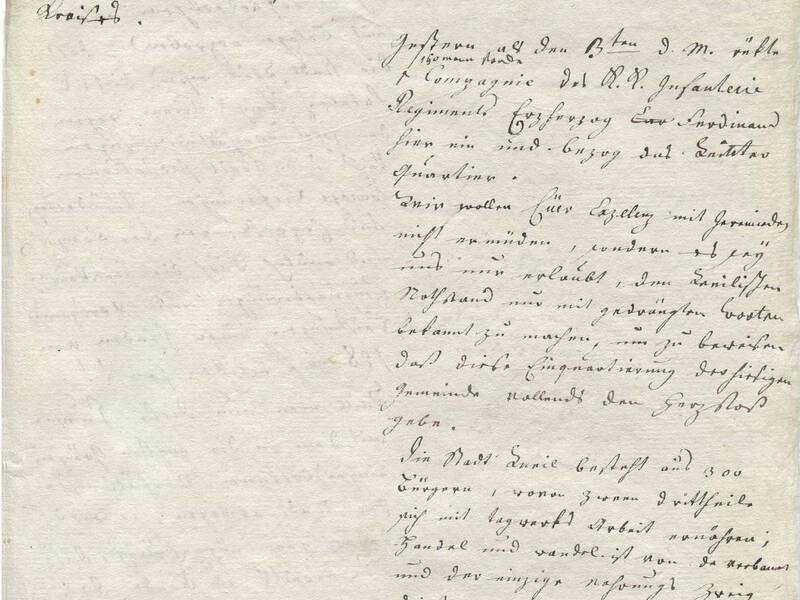 Kreises.
Gestern als den 3ten d. M. rükte
Compagnie des K. K. Infanterie
Regiments Erzherzog Ferdinand
hier ein und bezog das
Quartier.
Wir wollen Euer Exzellenz mit
nicht ermüden, sondern es sey
uns nur erlaubt, den
Nothstand nur mit gedrängten Worten
bekannt zu machen, um zu beweisen
daß diese Einquartierung der hiesigen
Gemeinde vollends den Herzstoß
gebe.
Die Stadt besteht aus 300
Bürgern, wovon zween drittheile
sich mit tagwerks Arbeit ernähren;
Handel und wandel ist von da verbannt
und der einzige nahrungs Zweig